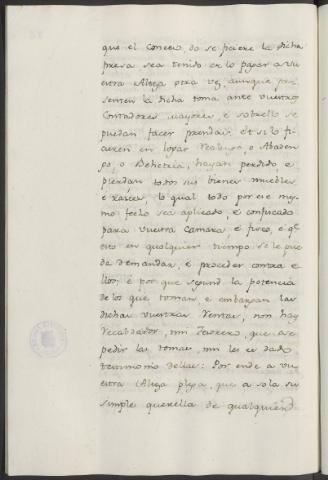 que el Concejo, do se ficiere la dicha
presa sea tenido de lo pagar a vu
estra Alteza otra vez, aunque pre
senten la dicha toma ante vuestros
Contadores mayores, e sobrello se
puedan facer prendas, et si lo fi
cieren en logar Realengo, o Abaden
go, o Behetria, hayan perdido, e
pierdan todos sus bienes muebles
e raices, lo qual todo por ese mis
mo fecho sea aplicado, e confiscado
para vuestra Camara, e fisco, e qe
esto en qualquier tiempo se le pue
da demandar, e proceder contra e
llos; e por que segund la potencia
de los que toman, e embargan las
dichas vuestras Rentas, non hay
Recabdador, nin Tesorero, que ose
pedir las tomas, nin les es dado
testimonio dellas: Por ende a vu
estra Alteza plega, que a sola su
simple querella de qualquiend